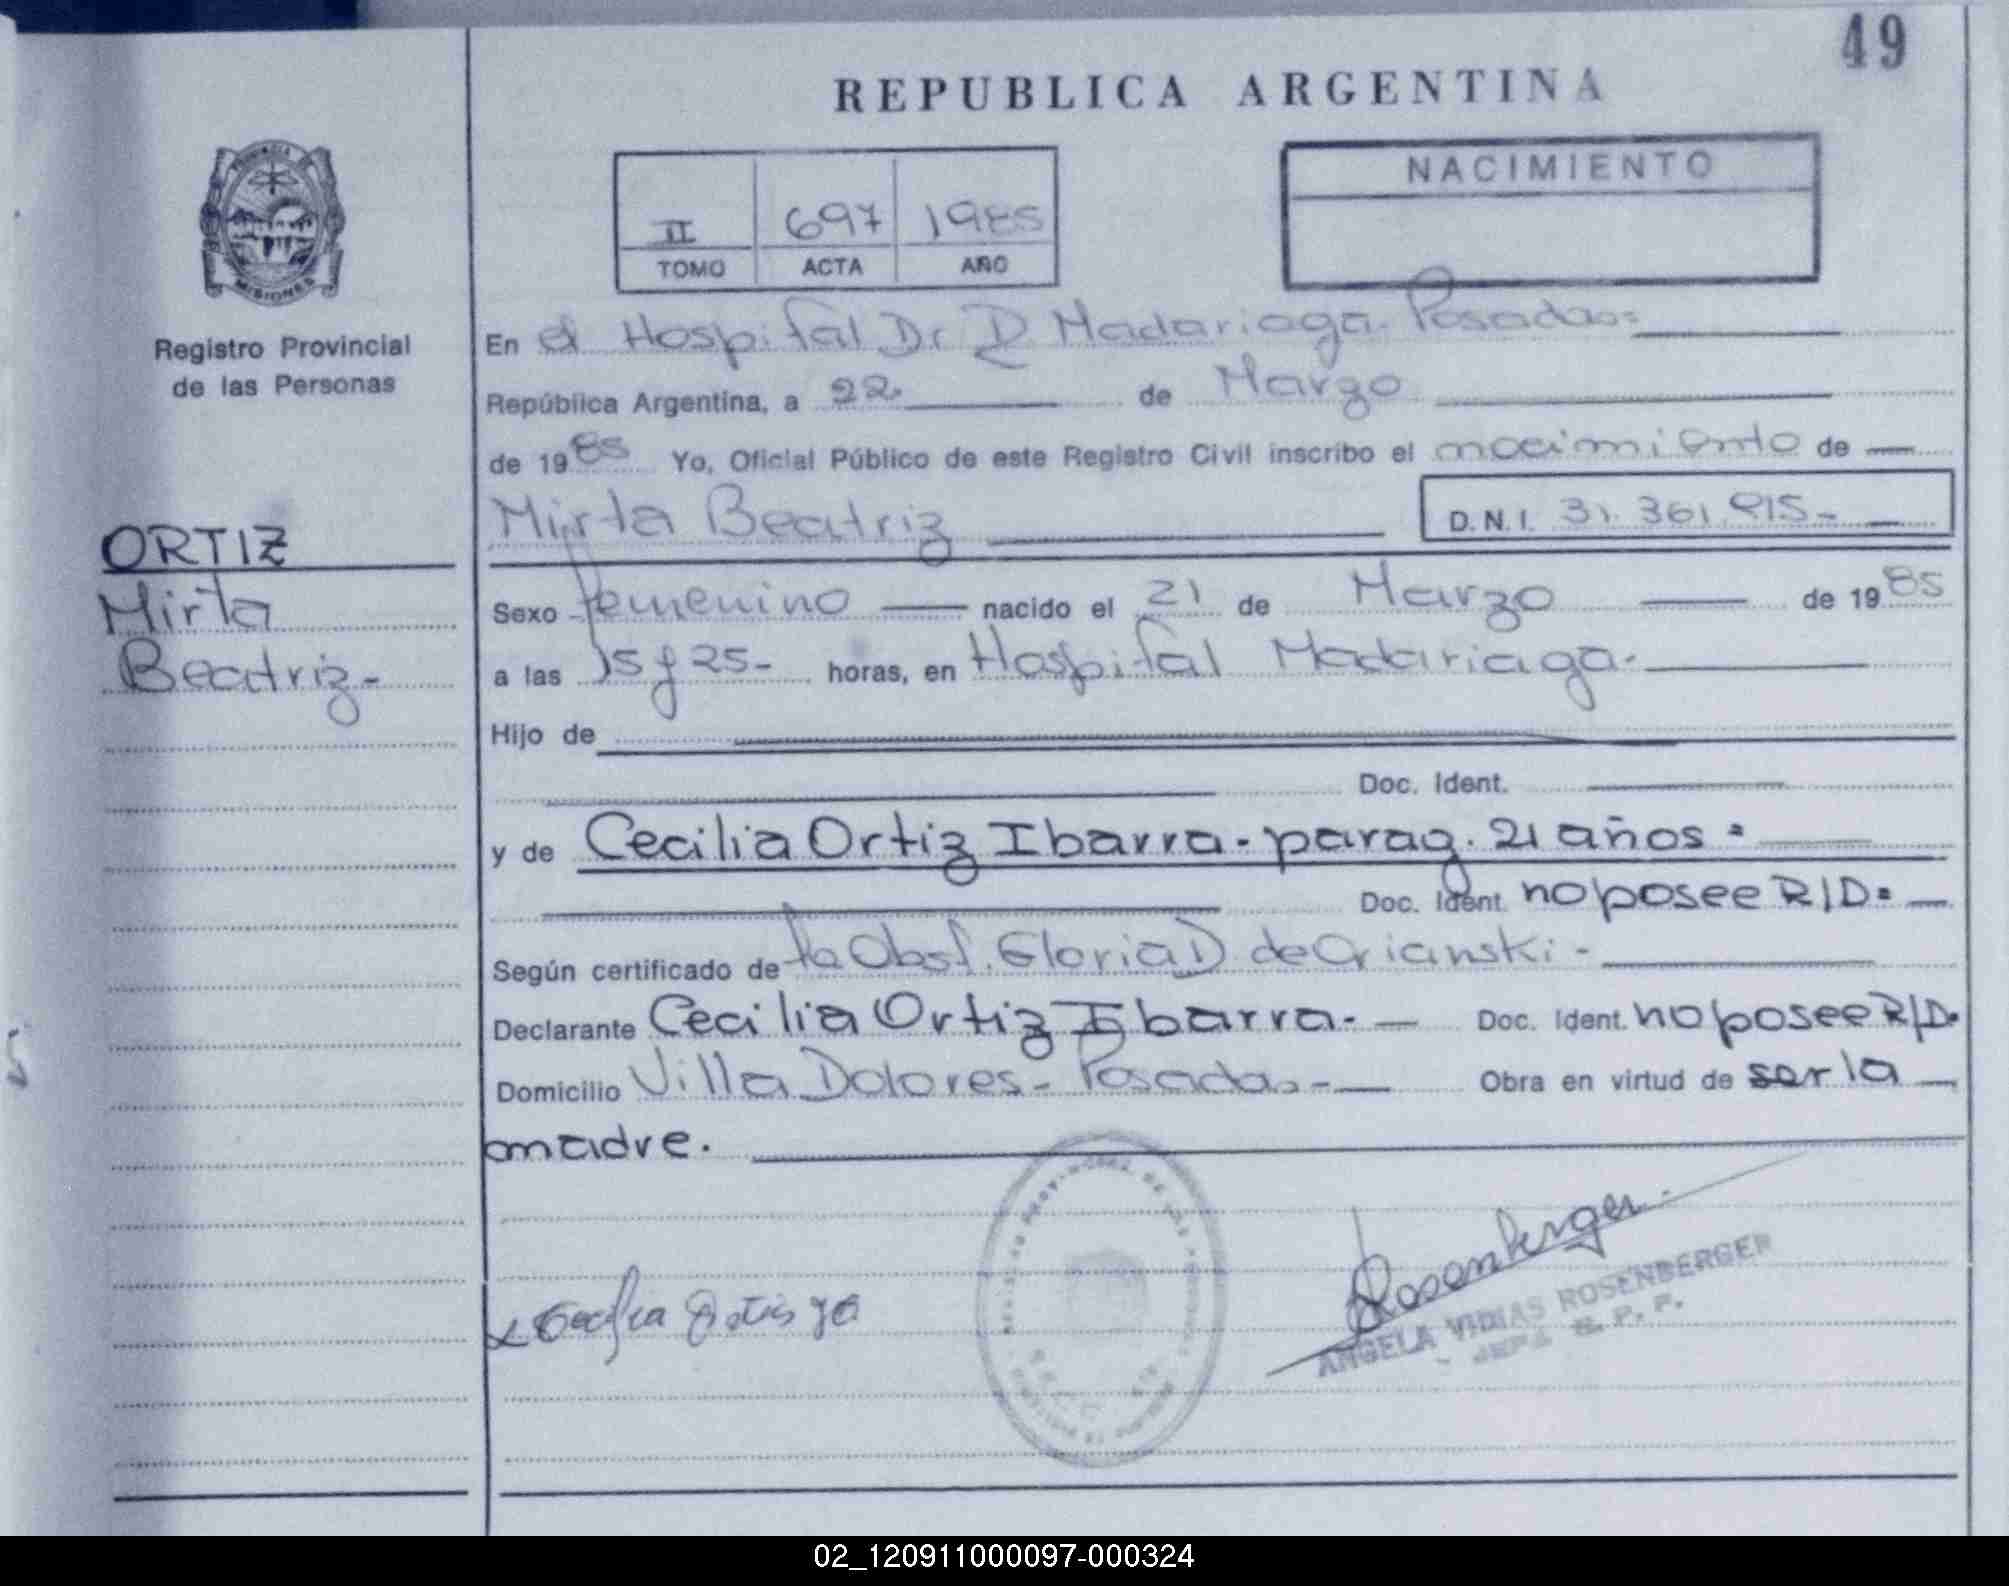 49
REPUBLICA ARGENTINA
PROVINCIA DE
MISIONES
Registro Provincial
de las Personas
II 697 1985
TOMO ACTA AÑO
NACIMIENTO
En el Hospital Dr D Madariaga. Posadas=
República Argentina, a 22. de Marzo
de 1985 Yo, Oficial Público de este Registro Civil inscribo el nacimiento de
Mirta Beatriz
D.N.I. 31.361.815-
ORTIZ
Mirta
Beatriz-
Sexo femenino nacido el 21 de Marzo de 1985
a las 15 y 25- horas, en Hospital Madariaga-
Hijo de
Doc. Ident.
y de Cecilia Ortiz Ibarra- parag. 21 años=
Doc. Ident. no posee R/D=
Según certificado de la Obst. Gloria D de
Declarante Cecilia Ortiz Ibarra- Doc. Ident. no posee R/D.
Domicilio Villa Dolores- Posadas- Obra en virtud de ser la
madre.
Rosenberger
ANGELA VIDIAS ROSENBERGER
R. P. P.
02_120911000097-000324